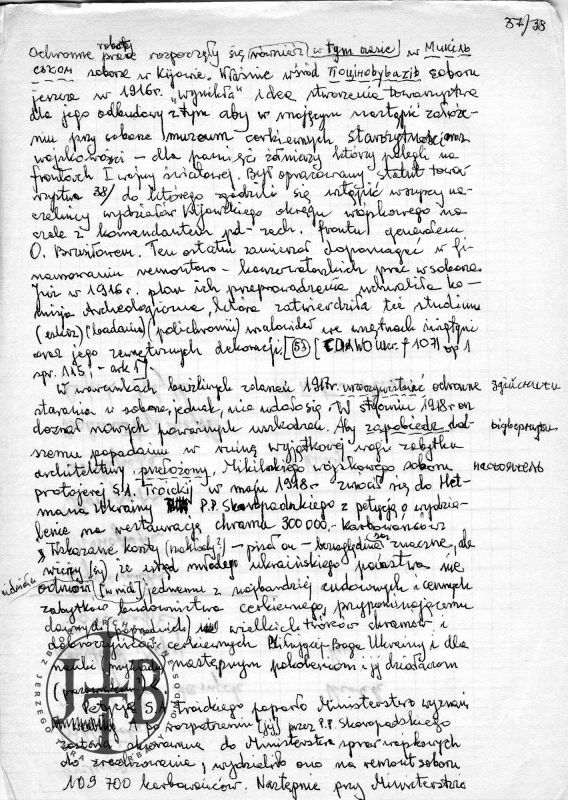 37/38
Ochronne prace roboty rozpoczęły się również (w tym czasie) w Микіль
ськом soborze w Kijowie. Właśnie wśród soboru
jeszcze w 1916r. "wynikła" idea stworzenia towarzystwa
dla jego odbudowy z tym aby w znajść nastąpić założe-
niu przy soborze muzeum cerkiewnych starożytności oraz
wojskowości – dla pamięci żołnierzy którzy polegli na
frontach I wojny światowej. Był opracowany statut towa
rzystwa 38/ do którego zgodzili się wstąpić wszyscy na-
czelnicy wydziałów Kijowskiego okręgu wojskowego na
czele z komendantem pd-zach. frontu generałem
O. Brusiłowem. Ten ostatni zamierzał dopomagać w fi-
nansowaniu remontowo-konserwatorskich prac w soborze.
Już w 1916r. plan ich przeprowadzenia uchwaliła ko-
misja Archeologiczna, która zatwierdziła też studium
(eskiz) (badania) (polichromii) malowideł we wnętrzach świątyni
oraz jego zewnętrznych dekoracji. [53] [CDIAWO Ukr. f 1071 op 1
spr. 115, - ark 1]
W warunkach burzliwych zdarzeń 1917r. urzeczywistnić ochronne
starania w soborze, jednak, nie udało się. W styczniu 1918r on
doznał nowych poważnych uszkodzeń. Aby zapobiedz dal-
szemu popadaniu w ruinę wyjątkowej wagi zabytku
architektury, przełożony, Mikilskiego wojskowego soboru настоятель
protojerej S.I. Troickij w maju 1918r zwrócił się do Het-
mana Ukrainy P.P. Skoropadskiego z petycją o wydzie-
lenie na restaurację chramu 300 000,- karbowańców
"Wskazane koszty (nakłady?) – pisał on – bezwzględnie są znaczne, ale
wierzę (się) że urząd młodego ukraińskiego państwa nie
odmówi (w nich) jednemu z najbardziej cudownych i cennych
zabytków budownictwa cerkiewnego, przypominającemu
dawnych wielkich twórców chramów i
dobroczyńców cerkiewnych Miłującej Boga Ukrainy i dla
nauki następnym pokoleniom i jej działaczom

Petycję S.I. Troickiego poparło Ministerstwo wyznań
A po rozpatrzeniu jej przez P.P. Skoropadskiego
została skierowana do Ministerstwa spraw wojskowych
do zrealizowania, wydzieliło ono na remont soboru
109 700 karbowańców. Następnie przy Ministerstwie